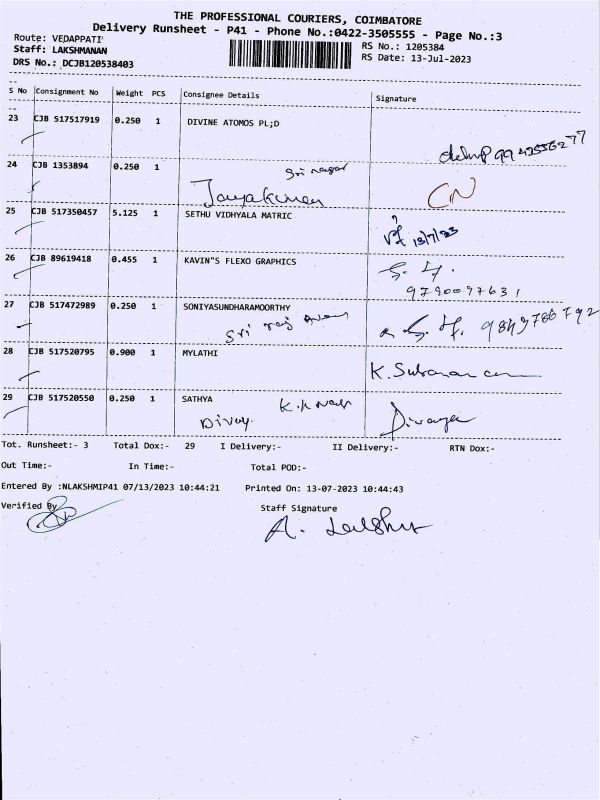 THE PROFESSIONAL COURIERS, COIMBATORE
Delivery Runsheet - P41 - Phone No.:0422-3505555 - Page No.:3
Route: VEDAPPATI
RS No.: 1205384
Staff: LAKSHMANAN
RS Date: 13-Jul-2023
DRS No.: DCJB120538403
S No Consignment No Weight PCS Consignee Details Signature
23 CJB 517517919 0.250 1 DIVINE ATOMOS PL;D
24 CJB 1353894 0.250 1 Sri nagar
Jayakumar CN
25 CJB 517350457 5.125 1 SETHU VIDHYALA MATRIC
13/7/23
26 CJB 89619418 0.455 1 KAVIN"S FLEXO GRAPHICS
9790097631
27 CJB 517472989 0.250 1 SONIYASUNDHARAMOORTHY
Sri raj 9849786792
28 CJB 517520795 0.900 1 MYLATHI
29 CJB 517520550 0.250 1 SATHYA
Divay. Divaya
Tot. Runsheet:- 3 Total Dox:- 29 I Delivery:- II Delivery:- RTN Dox:-
Out Time:- In Time:- Total POD:-
Entered By :NLAKSHMIP41 07/13/2023 10:44:21 Printed On: 13-07-2023 10:44:43
Verified By Staff Signature